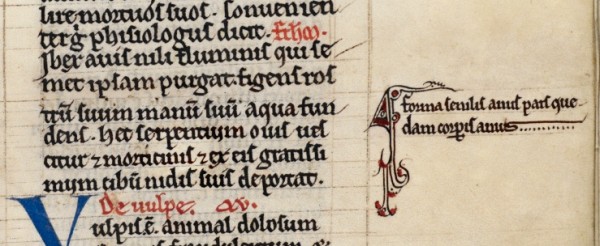 lire mortuos suos. Convenien
terg phisiologus dicit. Ethim
Iber avis nili fluminis qui se
met ipsam purgat. figens ros
trũ suum manũ suũ aqua fun
dens. hec serpentium ovis ves
citur ⁊ morticinis ⁊ ex eis gratissi
mum cibũ nidis suis deportat.
De vulpe. xv.
Vulpis ẽ animal dolosum
A forma senilis anus pars que
dam corpis anus